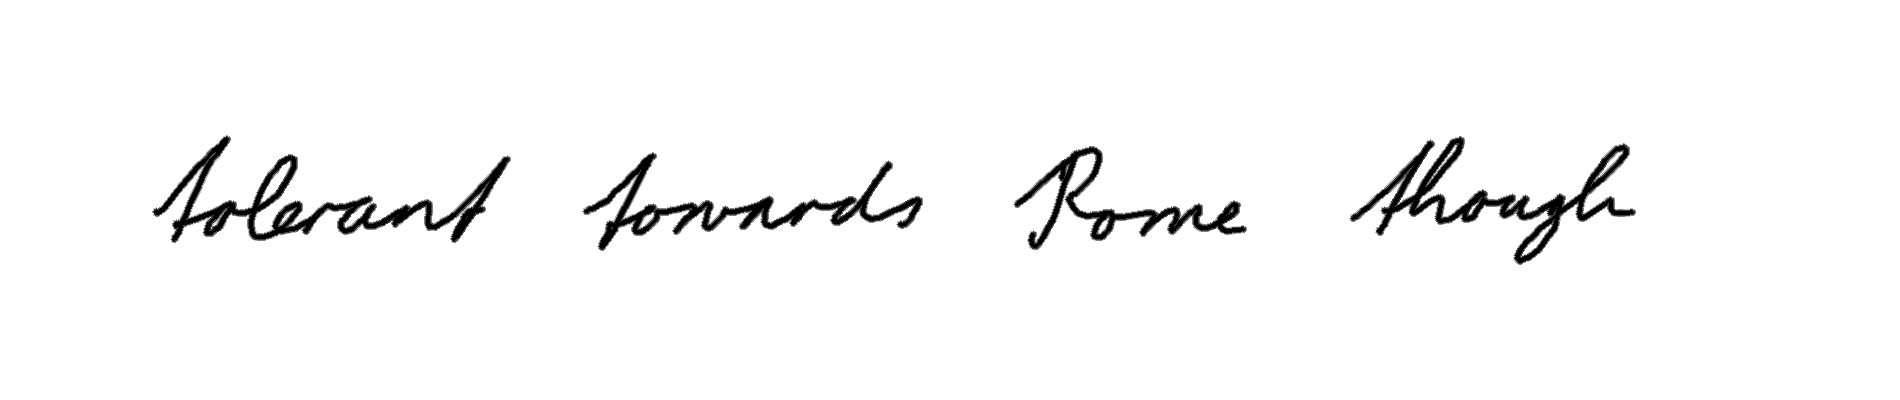 tolerant towards Rome though